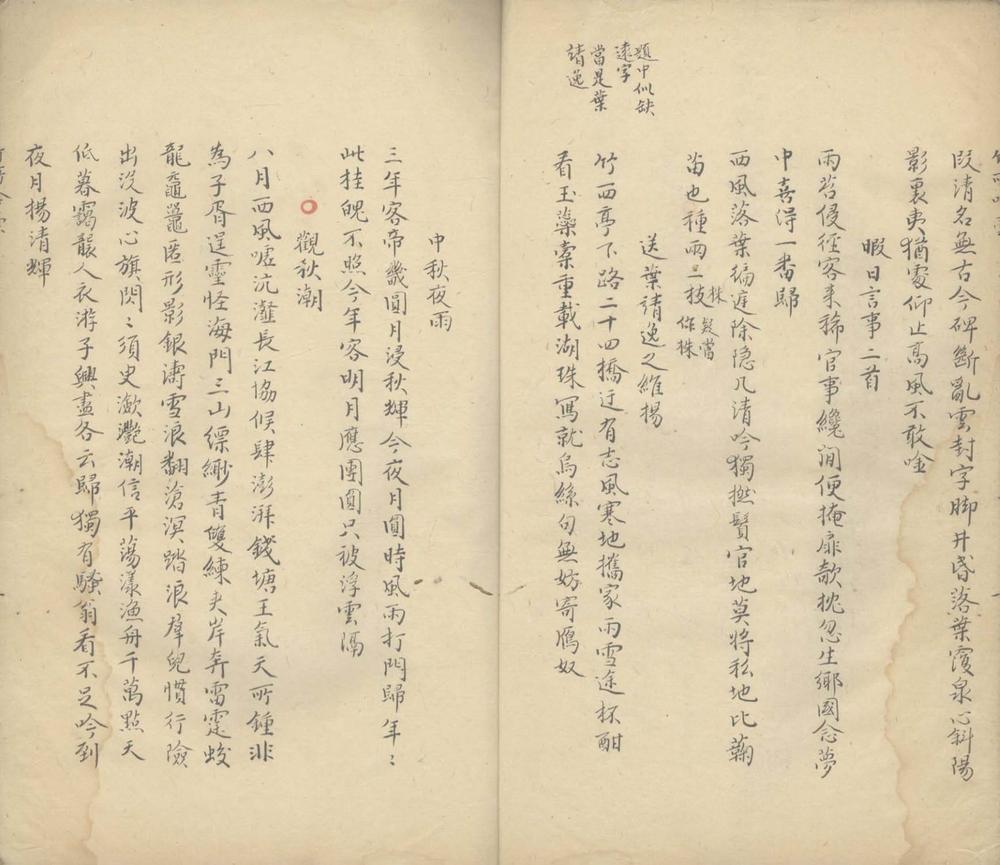 題中似缺
逺字
當是葉
靖逸
段清名無古今碑斷亂雲封字脚井昏落葉覆泉心斜陽
影裏夷猶處仰止高風不敢唫
暇日言事二首
雨苔侵徑客来稀官事纔閒便掩扉欹枕忽生鄉國念夢
中喜得一番歸
西風落葉徧庭除隐几清吟獨撚鬚官地莫將私地比蘜
苗也種兩三枝
株疑當
作株
送葉靖逸之維揚
竹西亭下路二十四橋迂有志風寒地攜家雨雪途杯酣
看玉蘂槖重載湖珠寫就烏絲句無妨寄鴈奴
中秋夜雨
三年客帝畿圓月浸秋輝今夜月圓時風雨打門歸年〻
此挂魄不照今年客明月應團圓只被浮雲隔
觀秋潮
八月西風嘘沆瀣長江協候肆澎湃錢塘王氣天所鍾非
為子胥逞靈怪海門三山縹緲青雙練夾岸奔雷霆蛟
龍黿鼉匿形影銀濤雪浪翻滄溟踏浪羣兒慣行險
出没波心旗閃〻須臾瀲灔潮信平蕩漾漁舟千萬點天
低暮靄襲人衣游子興盡各云歸獨有騷翁看不足吟到
夜月揚清輝